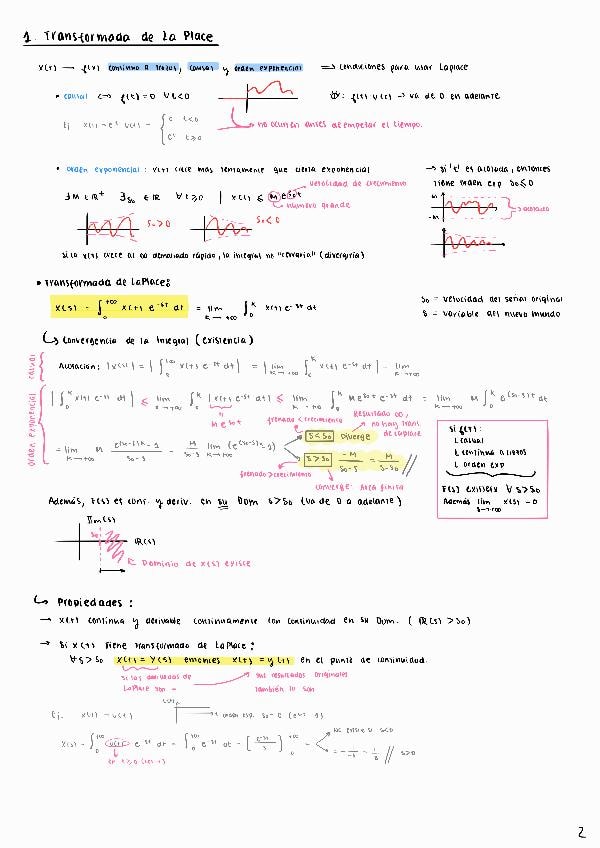 1. Transformada de La Place
x(t) → f(x) continuo a trozos, causal y orden exponencial ⟹ condiciones para usar Laplace
• causal ⟺ f(t)=0 ∀t<0
f(t) u(t) → va de 0 en adelante
Ej x(t)=eᵗ u(t) = { 0 t<0
eᵗ t≥0
no ocurren antes de empezar el tiempo.
• orden exponencial: x(t) crece más lentamente que cierta exponencial
→ si 't' es acotada, entonces
tiene orden exp so ≤ 0
velocidad de crecimiento
∃ M ∈ ℝ⁺ ∃ so ∈ ℝ ∀ t ≥ 0 | x(t) ≤ M e^{so t}
número grande
M
-M
acotado
so > 0
so < 0
si la x(t) crece al ∞ demasiado rápido, la integral no "cerraría" (divergiría)
• Transformada de LaPlace:
X(s) = ∫₀^{+∞} x(t) e^{-st} dt = lim_{K→+∞} ∫₀^K x(t) e^{-st} dt
so = velocidad del señal original
s = variable del nuevo mundo
↳ Convergencia de la integral (existencia)
causal
Acotación: |X(s)| = |∫₀^{+∞} x(t) e^{-st} dt| = |lim_{K→+∞} ∫₀^K x(t) e^{-st} dt| = lim_{K→+∞}
orden exponencial
|∫₀^K x(t) e^{-st} dt| ≤ lim_{K→+∞} ∫₀^K |x(t) e^{-st} dt| ≤ lim_{K→+∞} ∫₀^K M e^{so t} e^{-st} dt = lim_{K→+∞} M ∫₀^K e^{(so-s)t} dt
M e^{so t}
frenado < crecimiento
Resultado ∞,
no hay trans
de Laplace
= lim_{K→+∞} M (e^{(so-s)K} - 1)/(so-s) = M/(so-s) lim_{K→+∞} (e^{(so-s)K} - 1)
s < so Diverge
s > so -M/(so-s) = M/(s-so) //
frenado > crecimiento
converge: área finita
Si f(t):
L causal
L continua a trozos
L orden exp
F(s) existe ∀ s > so
Además lim_{s→+∞} x(s) = 0
Además, F(s) es cont. y deriv. en su Dom s > so (va de 0 a adelante)
Im(s)
so
ℝ(s)
Dominio de X(s) existe
↳ Propiedades:
→ x(t) continua y derivable continuamente con continuidad en su Dom. (ℝ(s) > so)
→ Si x(t) tiene transformada de LaPlace:
∀ s > so X(s) = Y(s) entonces x(t) = y(t) en el punto de continuidad.
si las derivadas de
LaPlace son =
sus resultados originales
también lo son
Ej. x(t) = u(t)
u(t)
orden exp. so = 0
X(s) = ∫₀^{+∞} u(t) e^{-st} dt = ∫₀^{+∞} e^{-st} dt = [e^{-st}/-s]₀^{+∞} =
no existe si s<0
= -1/-s = 1/s // s>0
2